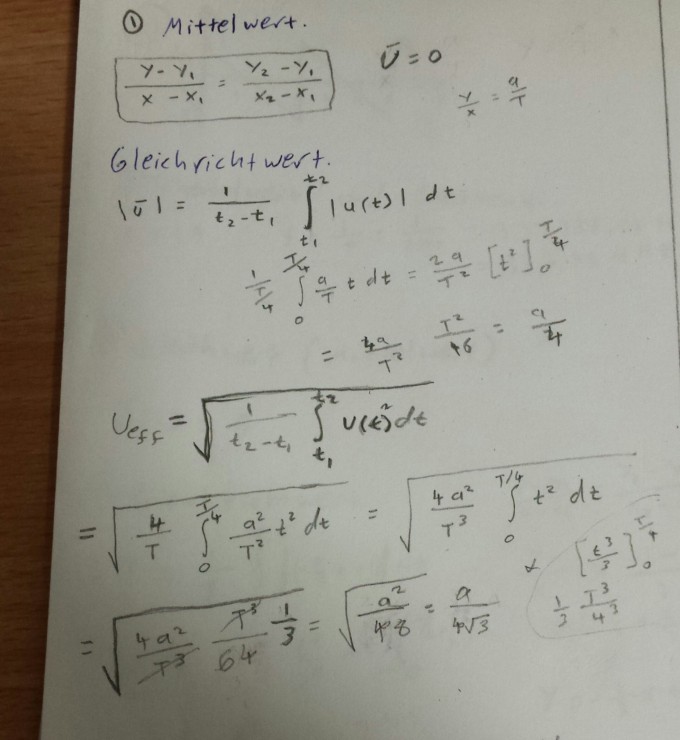 ① Mittelwert.
(y - y₁)/(x - x₁) = (y₂ - y₁)/(x₂ - x₁)
Ū = 0
y/x = a/T
Gleichrichtwert.
|ū| = 1/(t₂ - t₁) ∫_{t₁}^{t₂} |u(t)| dt
1/(T/4) ∫_0^{T/4} a/T t dt = 2a/T² [t²]_0^{T/4}
= a/T² T²/16 = a/
U_eff = √(1/(t₂ - t₁) ∫_{t₁}^{t₂} U(t)² dt)
= √(4/T ∫_0^{T/4} a²/T² t² dt) = √(4a²/T³ ∫_0^{T/4} t² dt)
[t³/3]_0^{T/4}
1/3 T³/4³
= √(4a²/T³ T³/64 1/3) = √(a²/48) = a/4√3